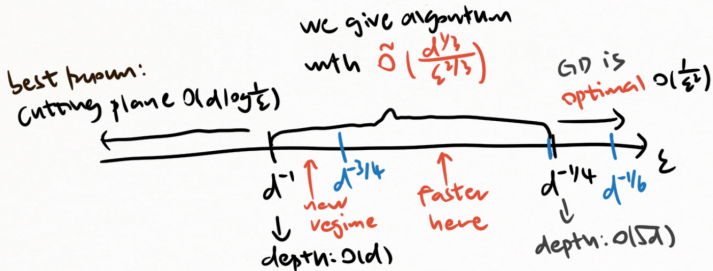 we give algorithm
with Õ(d^{1/3}/ε^{2/3})
best known:
cutting plane O(d log 1/ε)
GD is
optimal O(1/ε²)
d^{-1}
d^{-3/4}
d^{-1/4}
d^{-1/6}
ε
new
regime
faster
here
depth: O(d)
depth: O(√d)